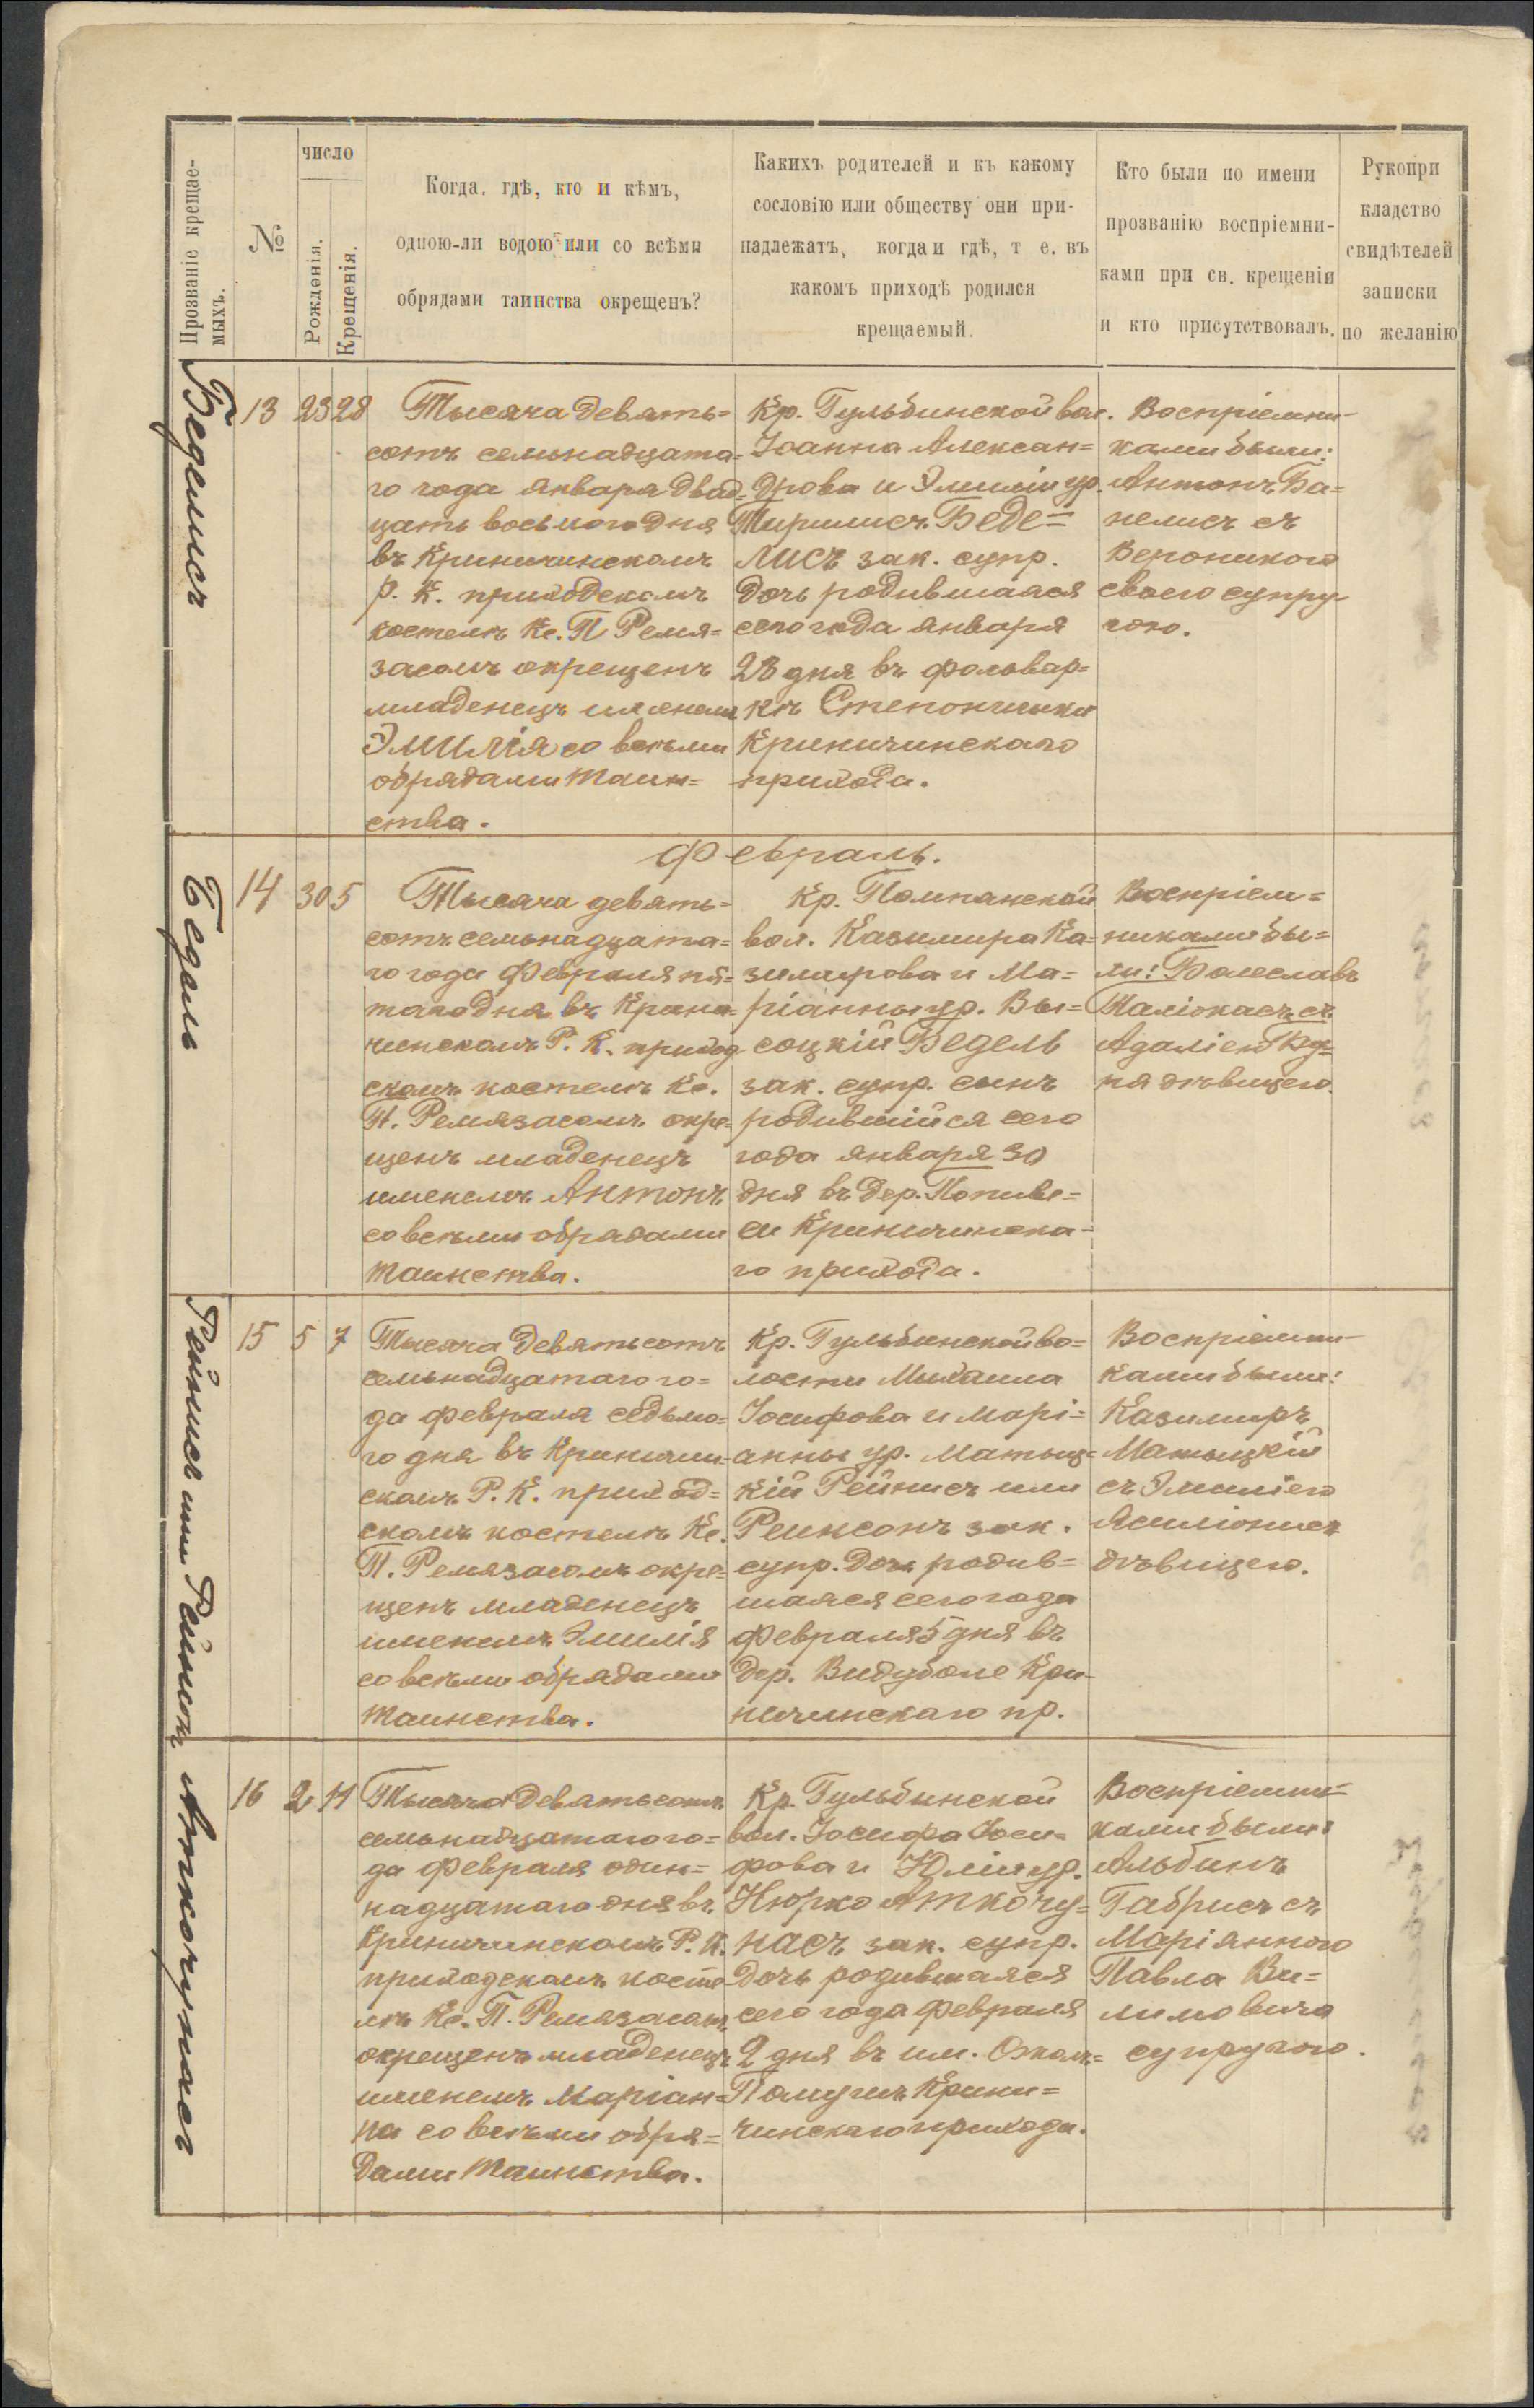 Прозваніе крещае-
мыхъ.
№
число
Рожденія.
Крещенія.
Когда, гдѣ, кто и кѣмъ,
одною-ли водою или со всѣми
обрядами таинства окрещенъ?
Каихъ родителей и къ какому
сословію или обществу они при-
надлежатъ, когда и гдѣ, т е. въ
какомъ приходѣ родился
крещаемый.
Кто были по имени
прозванію воспріемни-
ками при св. крещеніи
и кто присутствовалъ.
Рукопри
кладство
свидѣтелей
записки
по желанію
Беделисъ
13
23 28
Тысяча девять=
сотъ семьнадцата=
го года января двад=
цать восьмого дня
въ Криничинскомъ
Р. К. приходскомъ
костелѣ Кс. П Ремя=
засомъ окрещенъ
младенецъ именемъ
Эмилія со всѣми
обрядами таин=
ства.
Кр. Гульбинской вол.
Іоанна Алексан=
дрова и Эмиліи ур.
Тирилисъ Беде=
лисъ зак. супр.
дочь родившаяся
сего года января
23 дня въ фольвар=
кѣ Степонишки
Криничинскаго
прихода.
Воспріемни-
ками были:
Антонъ Ба=
нелисъ съ
Вероникою
своею супру-
гою.
Февраль.
Бедель
14
30 5
Тысяча девять=
сотъ семьнадцата=
го года февраля пя=
таго дня въ Крини=
чинскомъ Р. К. приход
скомъ костелѣ Кс.
П. Ремязасомъ окре=
щенъ младенецъ
именемъ Антонъ
со всѣми обрядами
таинства.
Кр. Помпянской
вол. Казимира Ка=
зимирова и Ма=
ріанны ур. Вы=
соцкій Бедель
зак. супр. сынъ
родившійся сего
года января 30
дня въ дер. Попиве=
си Криничинска-
го прихода.
Воспріем=
никами бы=
ли: Болеславъ
Маліокасъ съ
Адаліею
дѣвицею.
Рейнисъ или Рейнсонъ
15
5 7
Тысяча девятьсотъ
семьнадцатаго го=
да февраля седьмо=
го дня въ Криничин-
скомъ Р. К. приход=
скомъ костелѣ Кс.
П. Ремязасомъ окре=
щенъ младенецъ
именемъ Эмилія
со всѣми обрядами
таинства.
Кр. Гульбинской во=
лости Михаила
Іосифова и Марі=
анны ур. Матыц=
кій Рейнисъ или
Реинсонъ зак.
супр. дочь родив=
шаяся сего года
февраля 5 дня въ
дер. Видуболе Кри-
ничинскаго пр.
Воспріемни-
ками были:
Казимиръ
Матыцкій
съ Эмиліею
дѣвицею.
Аткочунасъ
16
2 11
Тысяча девятьсотъ
семьнадцатаго го=
да февраля один=
надцатаго дня въ
Криничинскомъ Р. К.
приходскомъ косте
лѣ Кс. П. Ремязасомъ
окрещенъ младенецъ
именемъ Маріан=
на со всѣми обря=
дами таинства.
Кр. Гульбинской
вол. Іосифа Іоси=
фова и Юліи ур.
Нюрко Аткочу=
насъ зак. супр.
дочь родившаяся
сего года февраля
2 дня въ им.
Крини=
чинскаго прихода.
Воспріемни=
ками были:
Альбинъ
Габрисъ съ
Маріянною
Павла Ви=
лимовича
супругою.